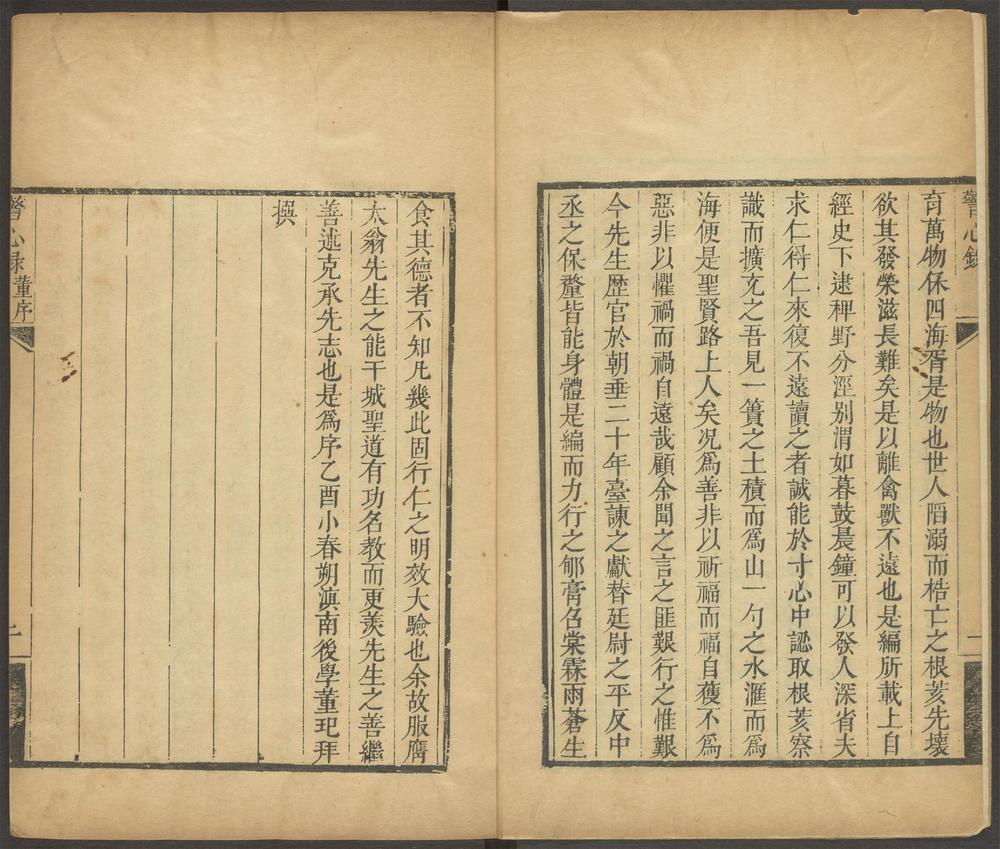 警心錄
育萬物保四海胥是物也世人陷溺而梏亡之根荄先壞
欲其發榮滋長難矣是以離禽獸不遠也是編所載上自
經史下逮稗野分涇别渭如暮鼓晨鐘可以發人深省夫
求仁得仁來復不遠讀之者誠能於寸心中認取根荄察
識而擴充之吾見一簣之土積而爲山一勺之水滙而爲
海便是聖賢路上人矣况爲善非以祈福而福自獲不爲
惡非以懼禍而禍自遠哉顧余聞之言之匪艱行之惟艱
今先生歷官於朝垂二十年臺諫之獻替廷尉之平反中
丞之保釐皆能身體是編而力行之郇膏召棠霖雨蒼生
食其德者不知凡幾此固行仁之明效大驗也余故服膺
太翁先生之能干城聖道有功名教而更羨先生之善繼
善述克承先志也是爲序乙酉小春朔滇南後學董玘拜
撰
警心录董序
二